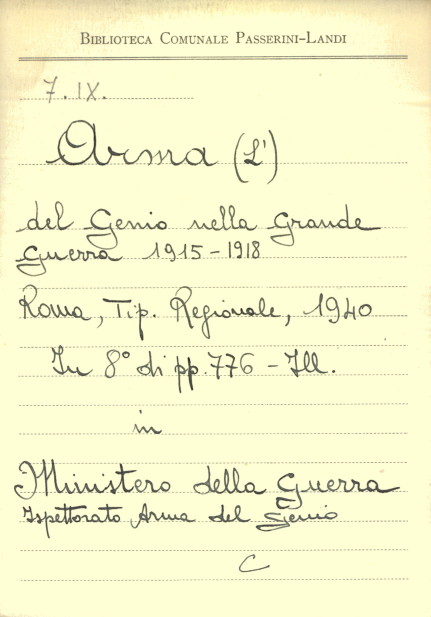 BIBLIOTECA COMUNALE PASSERINI-LANDI
7.IX.
Arma (L')
del Genio nella Grande
Guerra 1915-1918
Roma, Tip. Regionale, 1940
In 8° di pp. 776 - Ill.
in
Ministero della Guerra
Ispettorato Arma del Genio
C